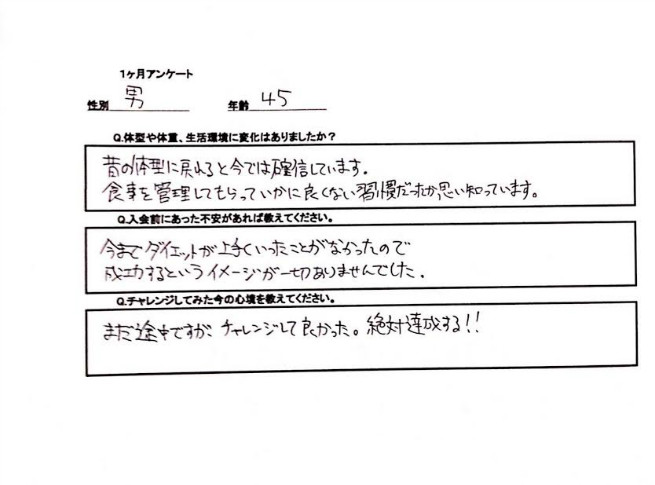 1ヶ月アンケート
性別 男 年齢 45
Q.体型や体重、生活環境に変化はありましたか?
昔の体型に戻れると今では確信しています。
食事を管理してもらっていかに良くない習慣だったか思い知っています。
Q.入会前にあった不安があれば教えてください。
今までダイエットが上手くいったことがなかったので
成功するというイメージが一切ありませんでした。
Q.チャレンジしてみた今の心境を教えてください。
まだ途中ですが、チャレンジして良かった。絶対達成する!!